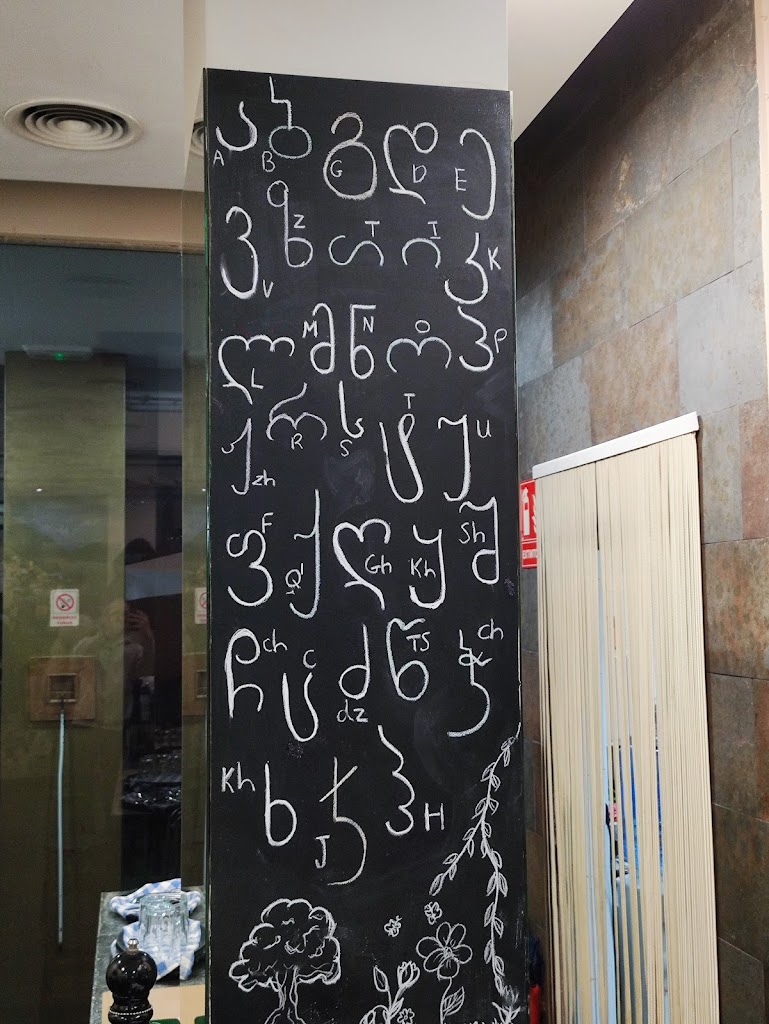 ა A ბ B გ G დ D ე E
ვ V ზ Z თ T ი I კ K
ლ L მ M ნ N ო O პ P
ჟ zh რ R ს S ტ T უ U
ფ F ქ Q' ღ Gh ყ Kh შ Sh
ჩ ch ც C ძ dz წ TS ჭ ch
ხ Kh ჯ J ჰ H